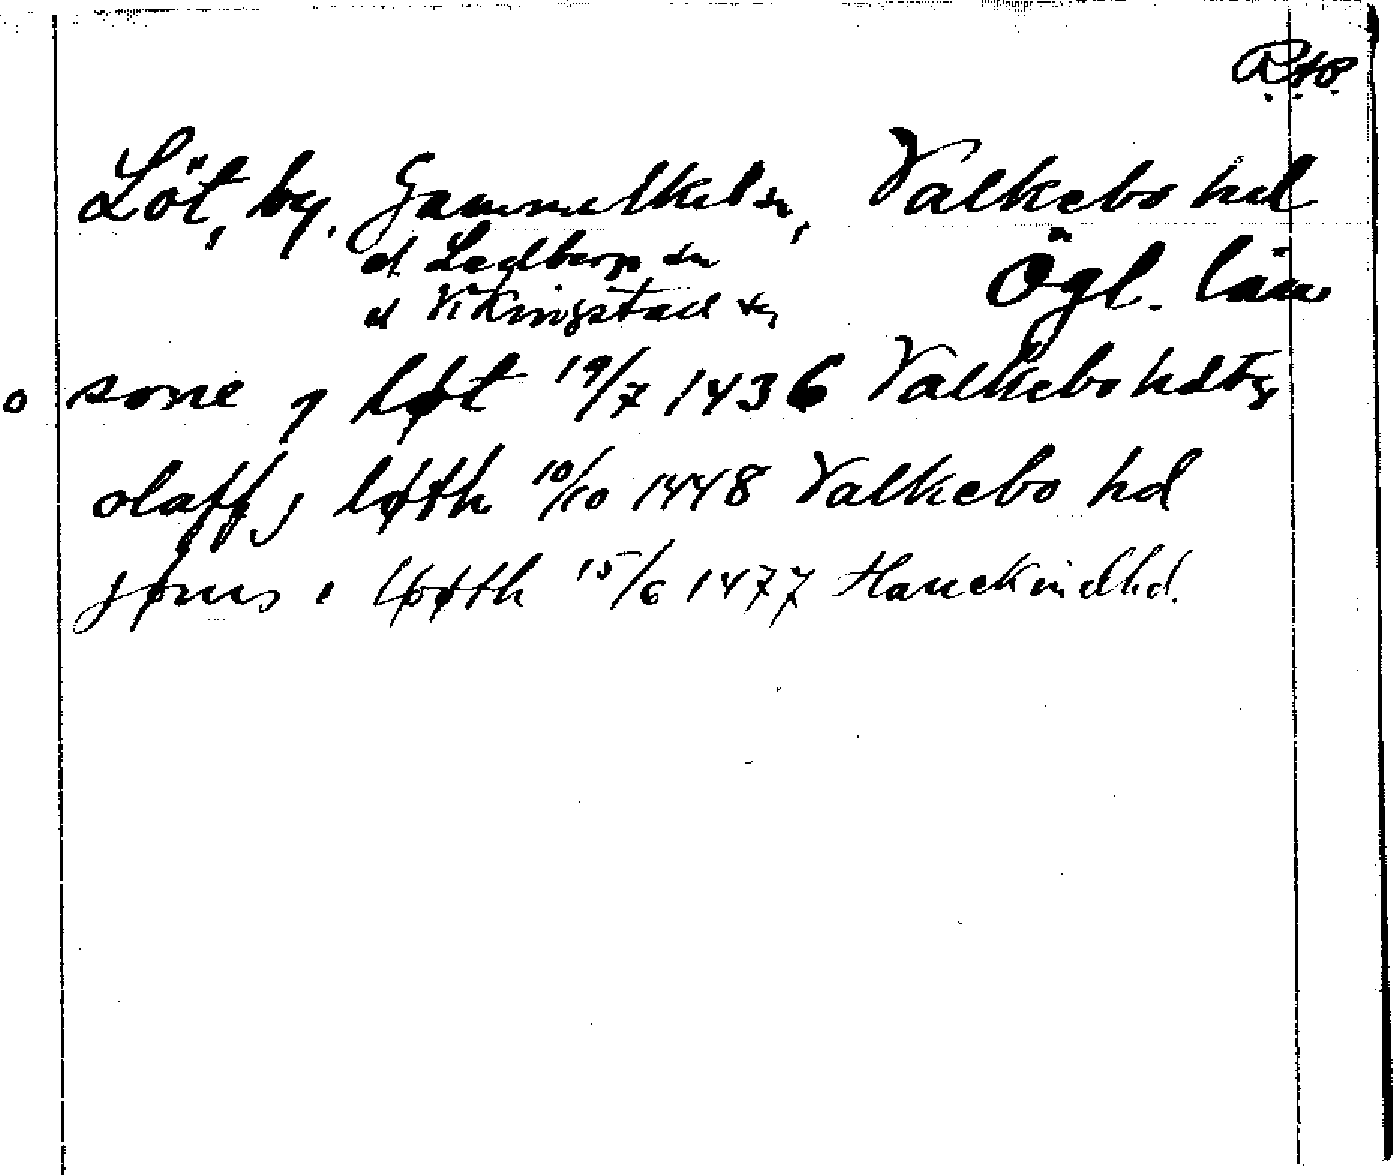 RAP.
Löt, by. Gammalkil sn, Valkebo hd
el Ledberg sn
el Vikingstad sn
Ögl. län
o sone j løt 19/7 1436 Valkebo hdtg
olaff j løth 10/10 1448 Valkebo hd
jøns i løøth 15/6 1477 Hanekindhd.